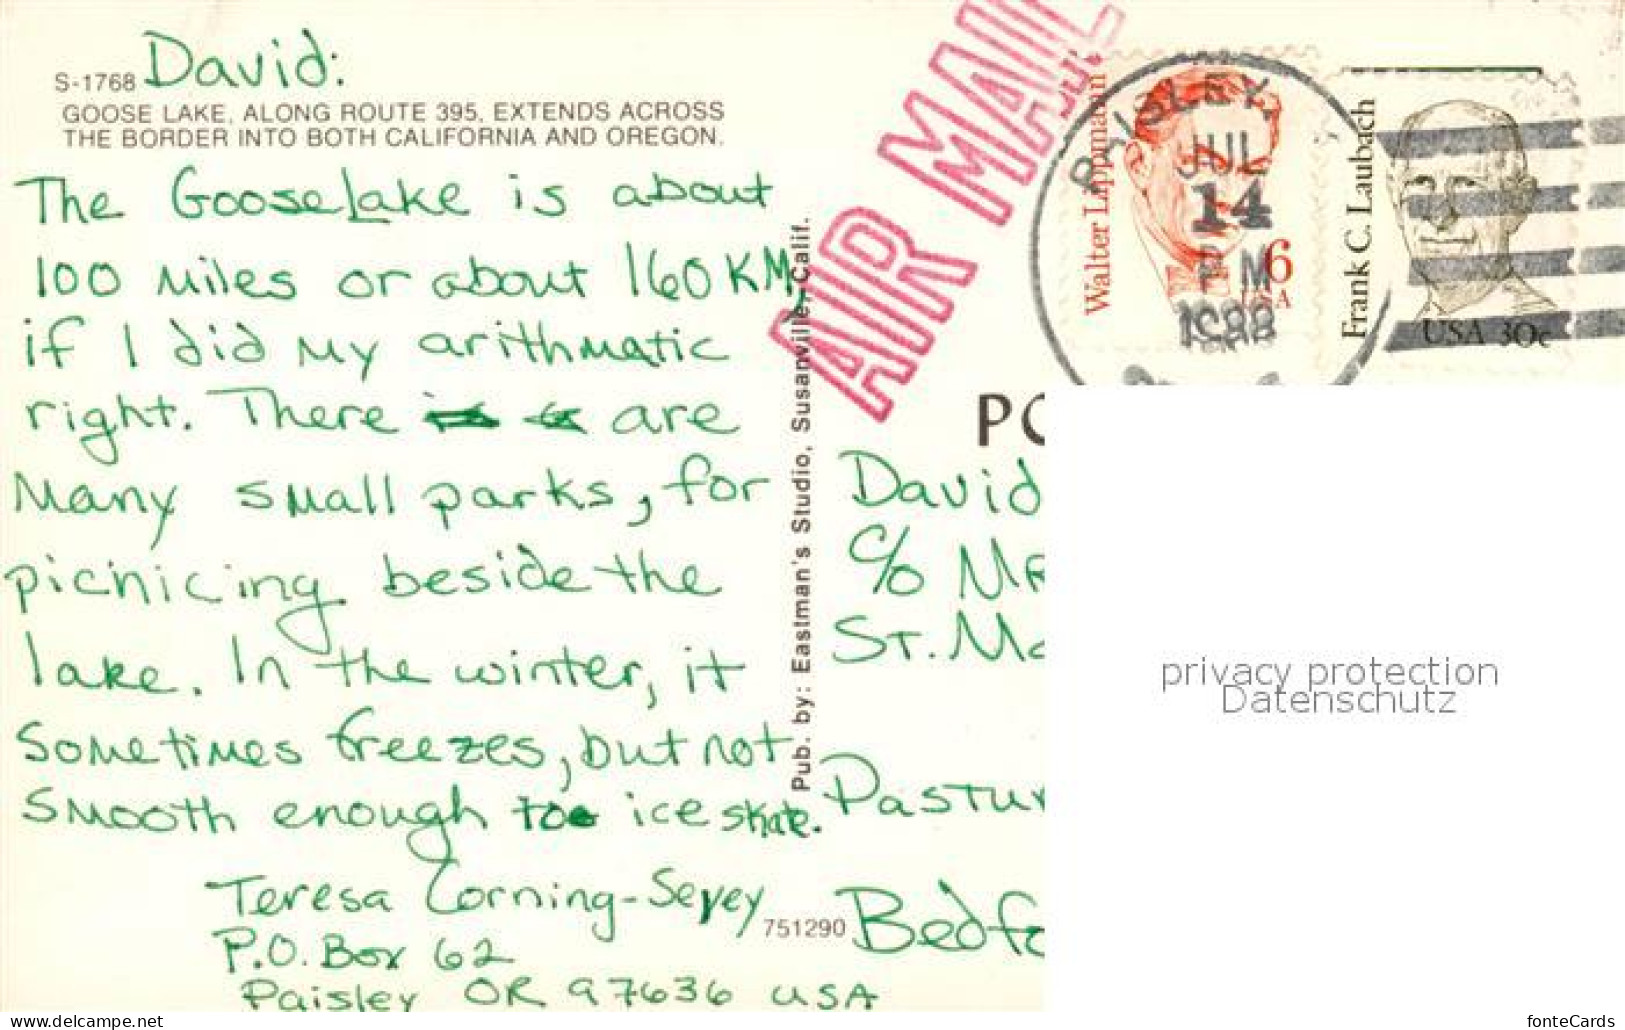 David:
S-1768
GOOSE LAKE, ALONG ROUTE 395, EXTENDS ACROSS
THE BORDER INTO BOTH CALIFORNIA AND OREGON.
The Goose Lake is about
100 miles or about 160 KM,
if I did my arithmatic
right. There are
many small parks, for
picnicing beside the
lake. In the winter, it
sometimes freezes, but not
smooth enough to ice skate.
Teresa Corning-Sevey
P.O. Box 62
Paisley OR 97636 USA
Pub. by: Eastman's Studio, Susanville, Calif.
751290
AIR MAIL
PAISLEY,
JUL
14
PM
1988
Walter Lippmann
6
USA
Frank C. Laubach
USA 30c
PO
David
c/o Mr
St. Ma
Pastur
Bedfo
privacy protection
Datenschutz
www.ansichtskarten-center.de
fonteCards